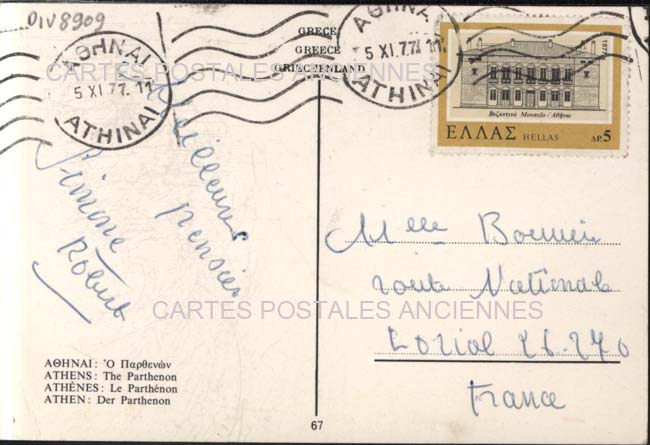 DIV8909
GRECE
GREECE
GRIECHENLAND
ΑΘΗΝΑΙ
5 XI.77. 11
ATHINAI
ΑΘΗΝΑΙ
5 XI.77. 11
ATHINAI
1977
Βυζαντινό Μουσείο - Αθήναι
ΕΛΛΑΣ HELLAS ΔΡ. 5
CARTES POSTALES ANCIENNES
Meilleures
pensées
Simone
Robert
Mlle
route National
Loriol 26.270
France
CARTES POSTALES ANCIENNES
ΑΘΗΝΑΙ: Ὁ Παρθενών
ATHENS: The Parthenon
ATHÈNES: Le Parthénon
ATHEN: Der Parthenon
67